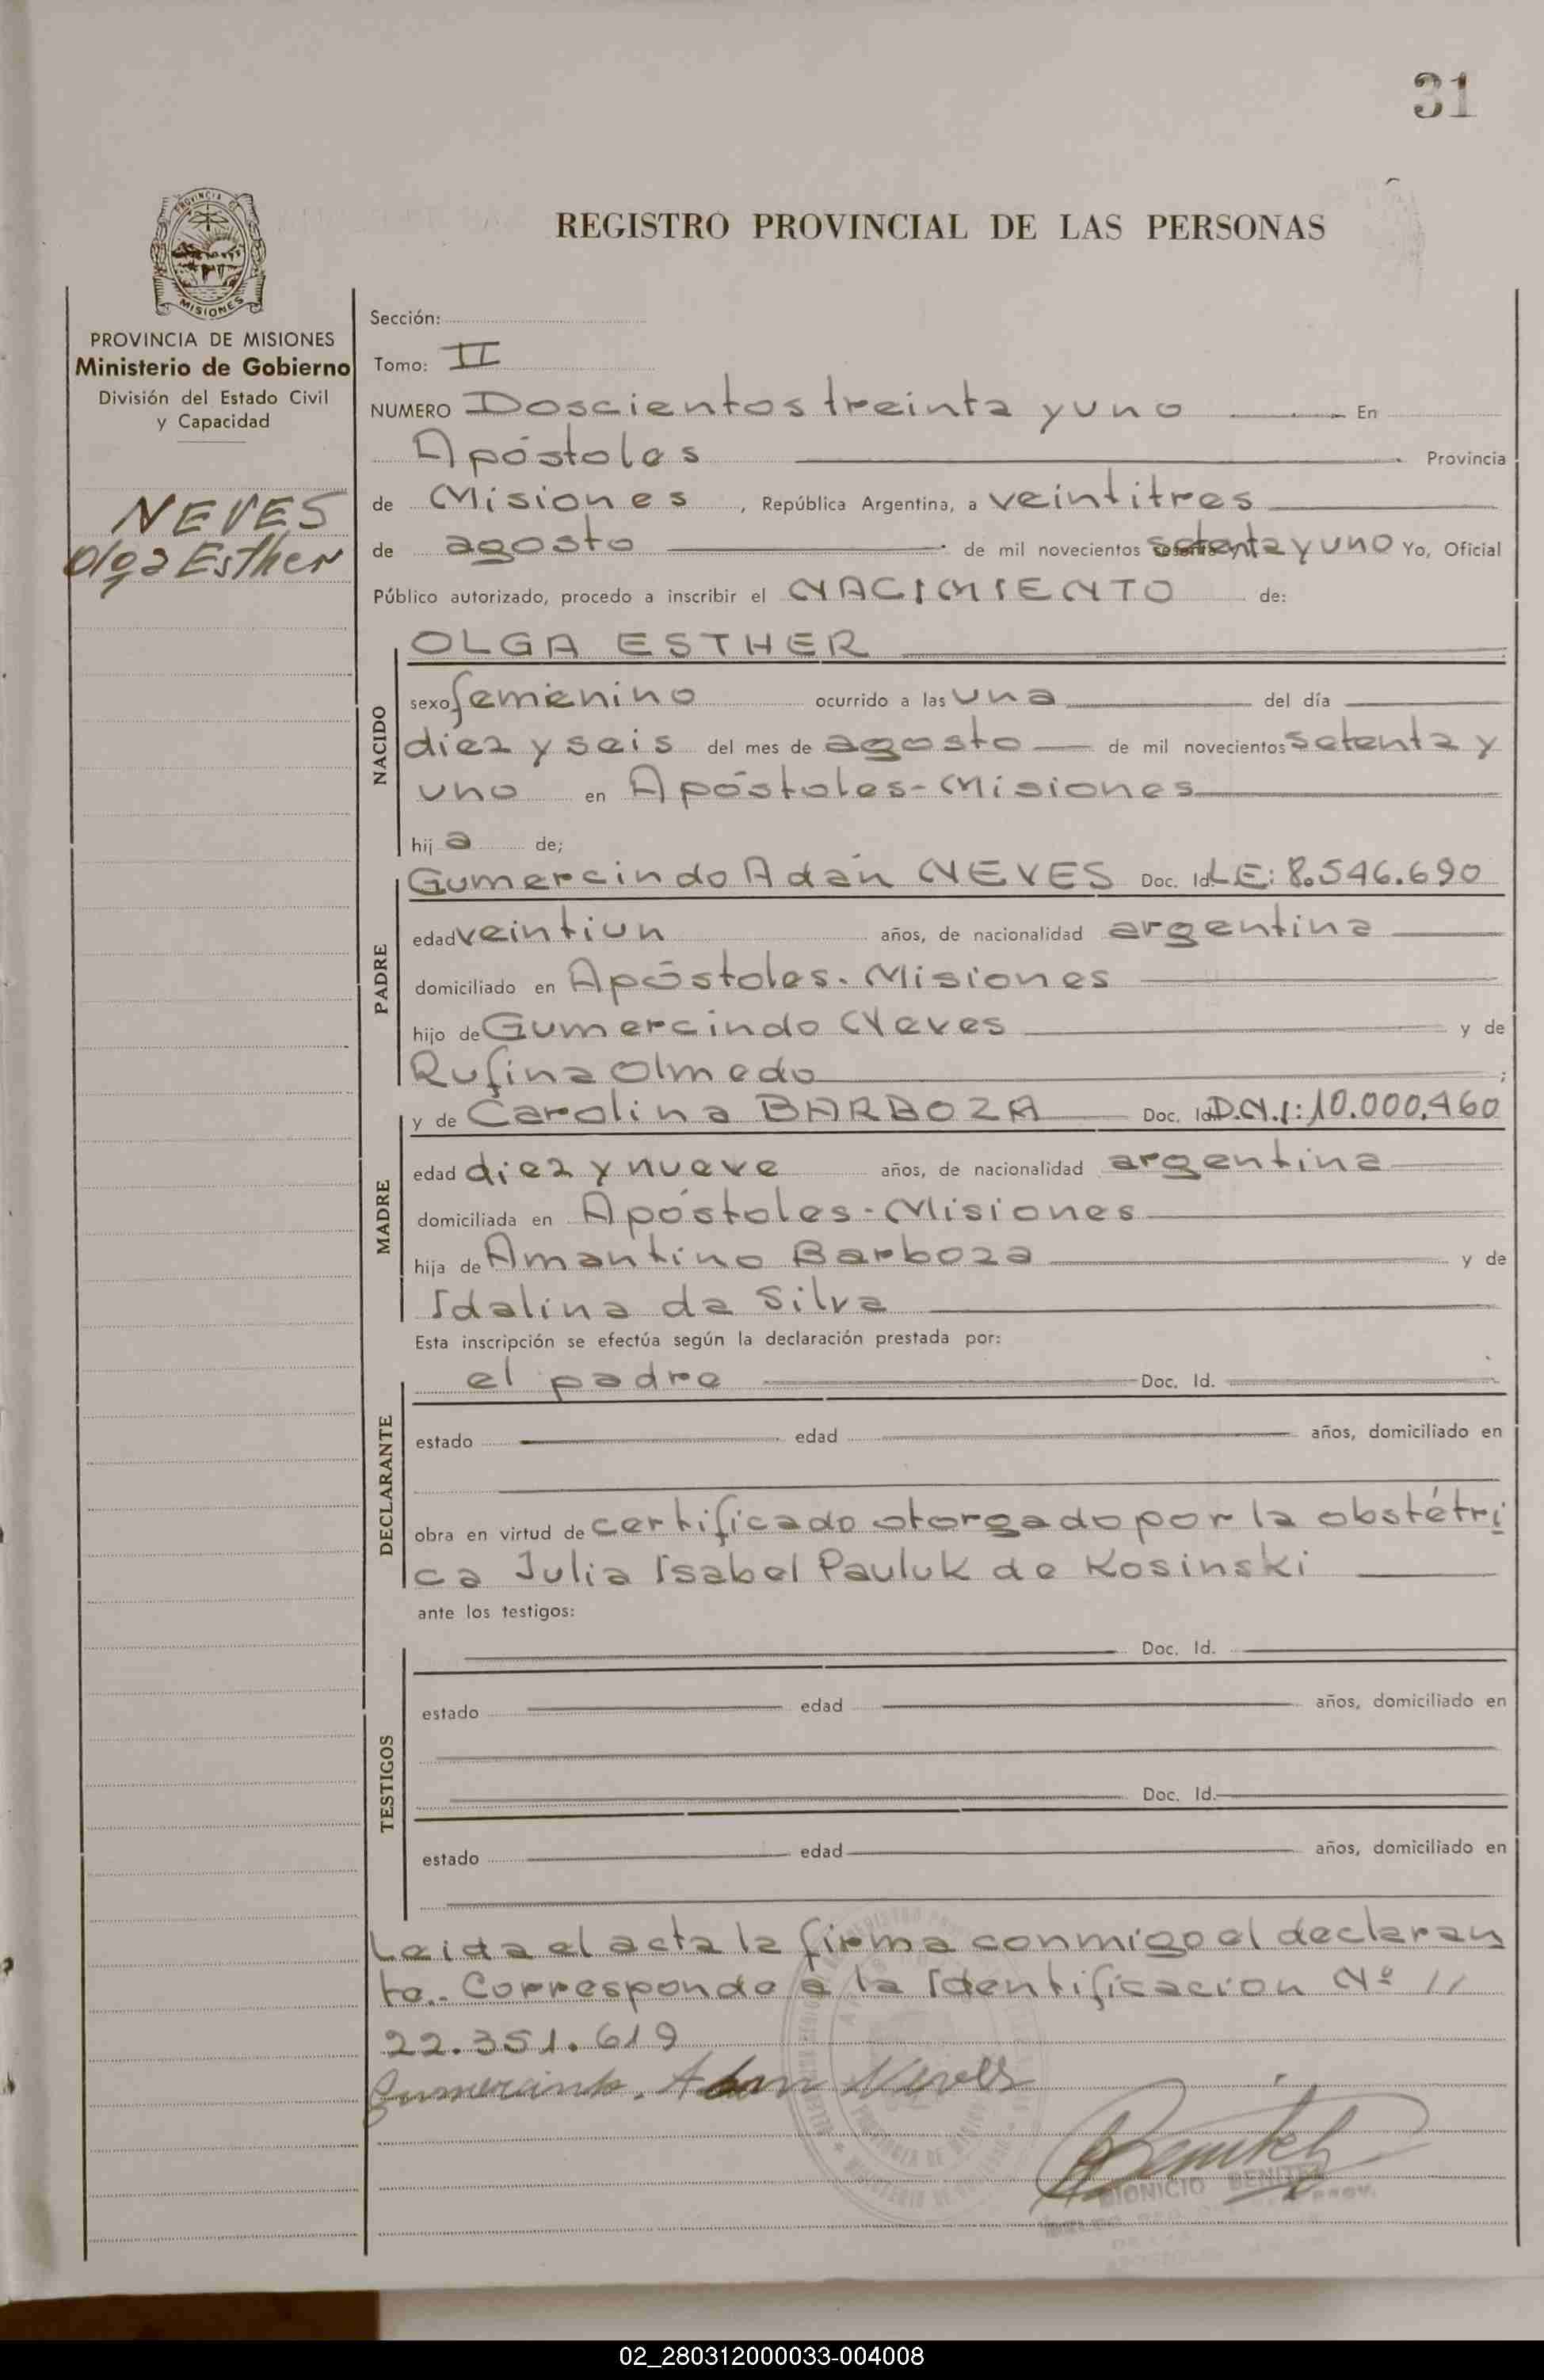 31
REGISTRO PROVINCIAL DE LAS PERSONAS
PROVINCIA DE MISIONES
Ministerio de Gobierno
División del Estado Civil
y Capacidad
NEVES
Olga Esther
Sección:
Tomo: II
NUMERO Doscientos treinta y uno En
Apóstoles Provincia
de Misiones, República Argentina, a veintitres
de agosto de mil novecientos setenta y uno Yo, Oficial
Público autorizado, procedo a inscribir el NACIMIENTO de:
NACIDO
OLGA ESTHER
sexo femenino ocurrido a las una del día
diez y seis del mes de agosto de mil novecientos setenta y
uno en Apóstoles-Misiones
hija de;
PADRE
Gumercindo Adán NEVES Doc. Id. LE: 8.546.690
edad veintiun años, de nacionalidad argentina
domiciliado en Apóstoles. Misiones
hijo de Gumercindo Neves y de
Rufina Olmedo ;
MADRE
y de Carolina BARBOZA Doc. Id. D.N.I: 10.000.460
edad diez y nueve años, de nacionalidad argentina
domiciliada en Apóstoles-Misiones
hija de Amantino Barboza y de
Idalina da Silva
Esta inscripción se efectúa según la declaración prestada por:
DECLARANTE
el padre Doc. Id.
estado edad años, domiciliado en
obra en virtud de certificado otorgado por la obstétri
ca Julia Isabel Pauluk de Kosinski
ante los testigos:
TESTIGOS
Doc. Id.
estado edad años, domiciliado en
Doc. Id.
estado edad años, domiciliado en
Leida el acta la firma conmigo el declaran
te.- Corresponde a la Identificacion Nº //
22.351.619
Gumercindo. Adan Neves
Benitez
DIONICIO BENITEZ
02_280312000033-004008